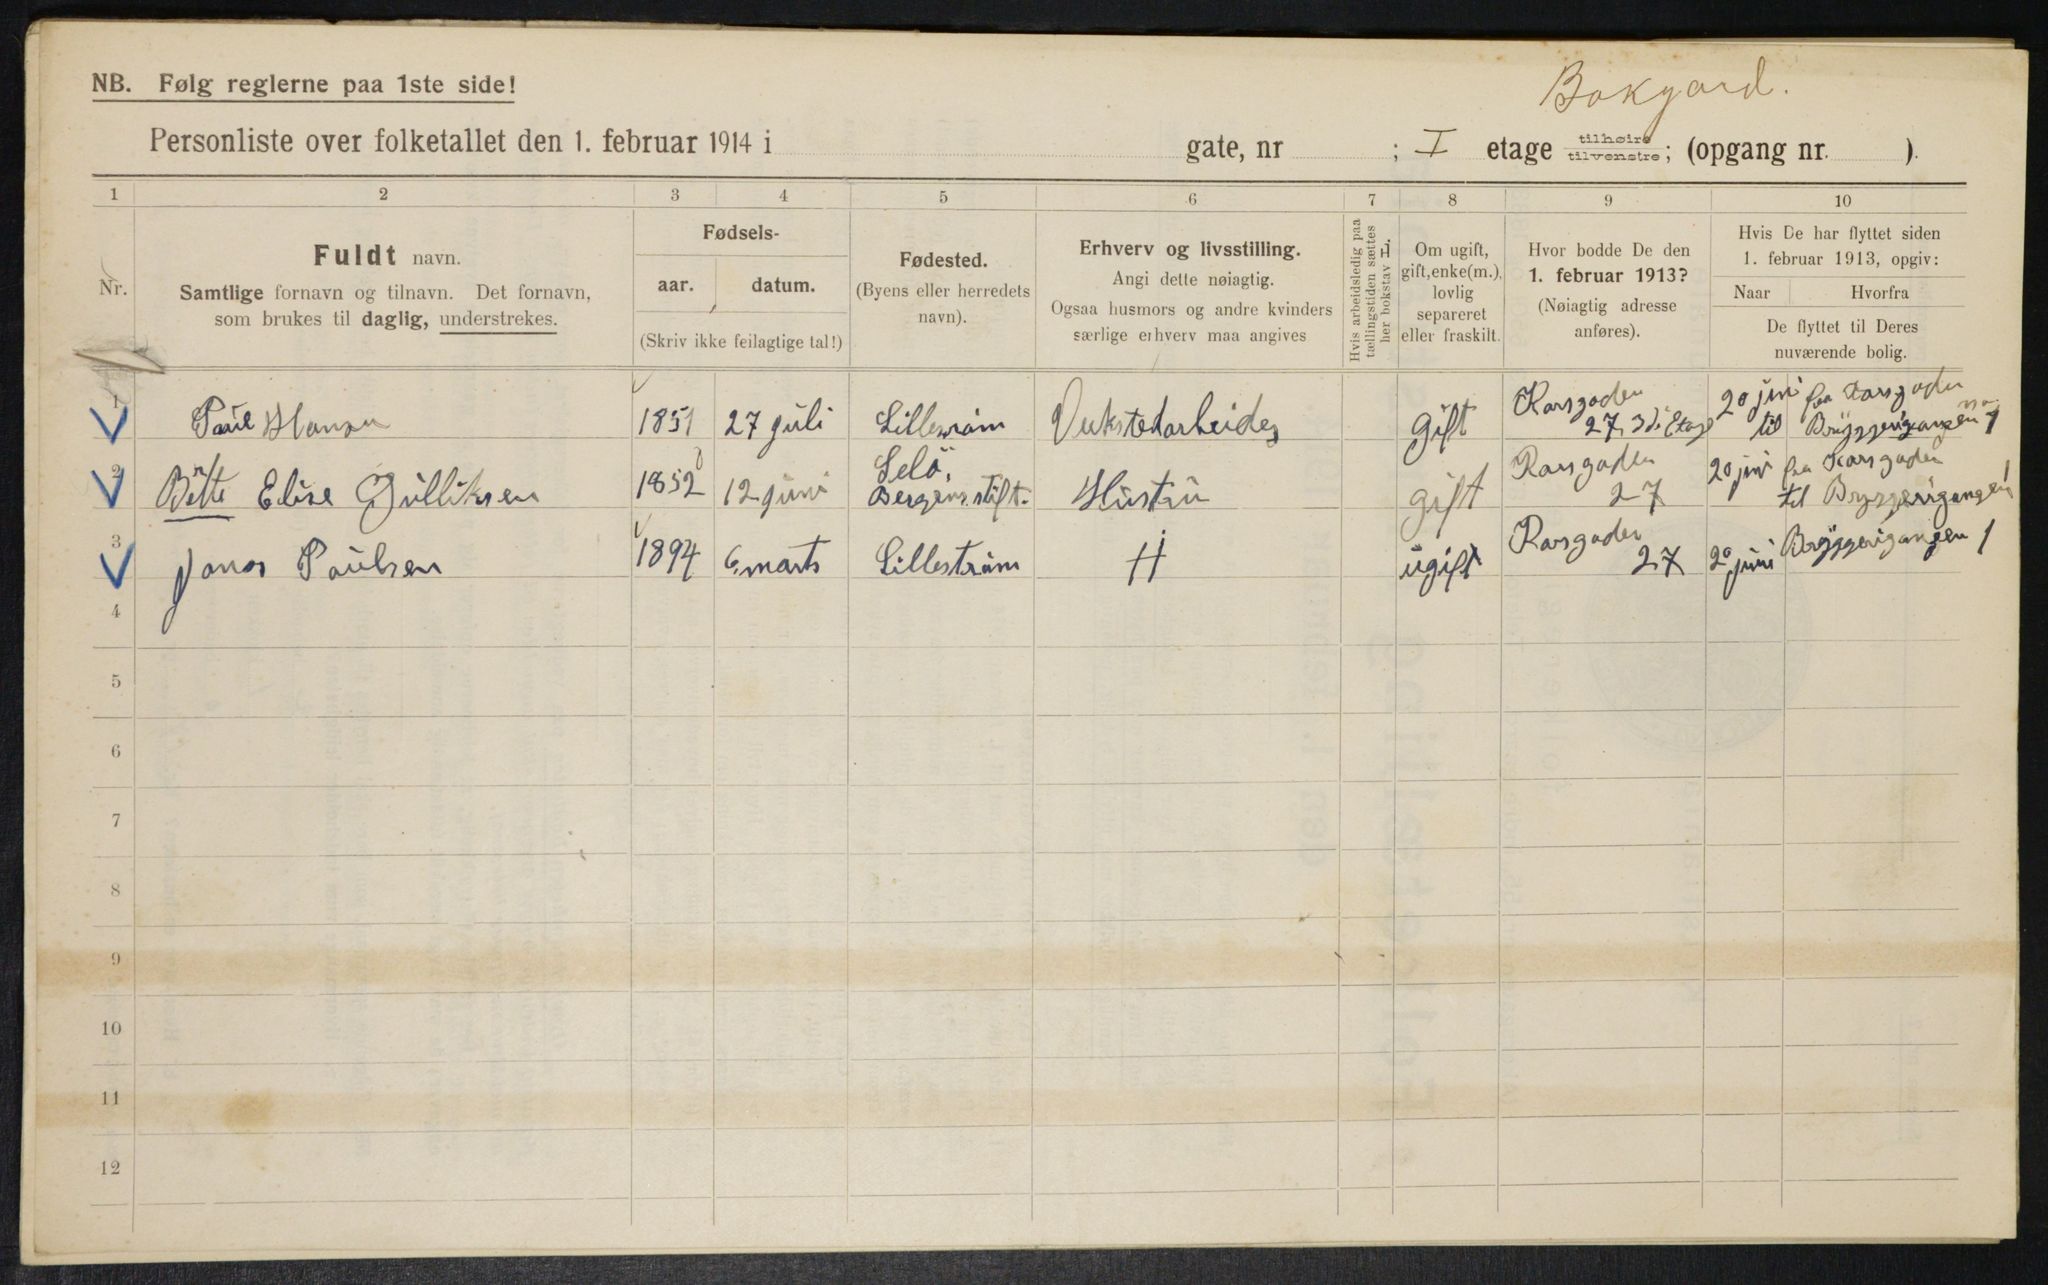 NB. Følg reglerne paa 1ste side!
Bakgard.
Personliste over folketallet den 1. februar 1914 i gate, nr ; I etage tilhøire tilvenstre; (opgang nr. ).
1 2 3 4 5 6 7 8 9 10
Nr.
Fuldt navn.
Samtlige fornavn og tilnavn. Det fornavn,
som brukes til daglig, understrekes.
Fødsels-
aar. datum.
(Skriv ikke feilagtige tal!)
Fødested.
(Byens eller herredets
navn).
Erhverv og livsstilling.
Angi dette nøiagtig.
Ogsaa husmors og andre kvinders
særlige erhverv maa angives
Hvis arbeidsledig paa
tællingstiden sættes
her bokstav H.
Om ugift,
gift, enke(m.),
lovlig
separeret
eller fraskilt.
Hvor bodde De den
1. februar 1913?
(Nøiagtig adresse
anføres).
Hvis De har flyttet siden
1. februar 1913, opgiv:
Naar Hvorfra
De flyttet til Deres
nuværende bolig.
1 Paul Hansen 1851 27 juli Lillestrøm gift Korsgaden 27, 3di Etage 20 juni til fra Korsgaden Bryggerigangen 1
2 Elise Gulliksen 1852 12 juni Selö, Bergens stift. Hustru gift Korsgaden 27 20 juni fra Korsgaden til Bryggerigangen 1
3 Jonas Paulsen 1894 6 marts Lillestrøm H ugift Korsgaden 27 20 juni Bryggerigangen 1
4
5
6
7
8
9
10
11
12